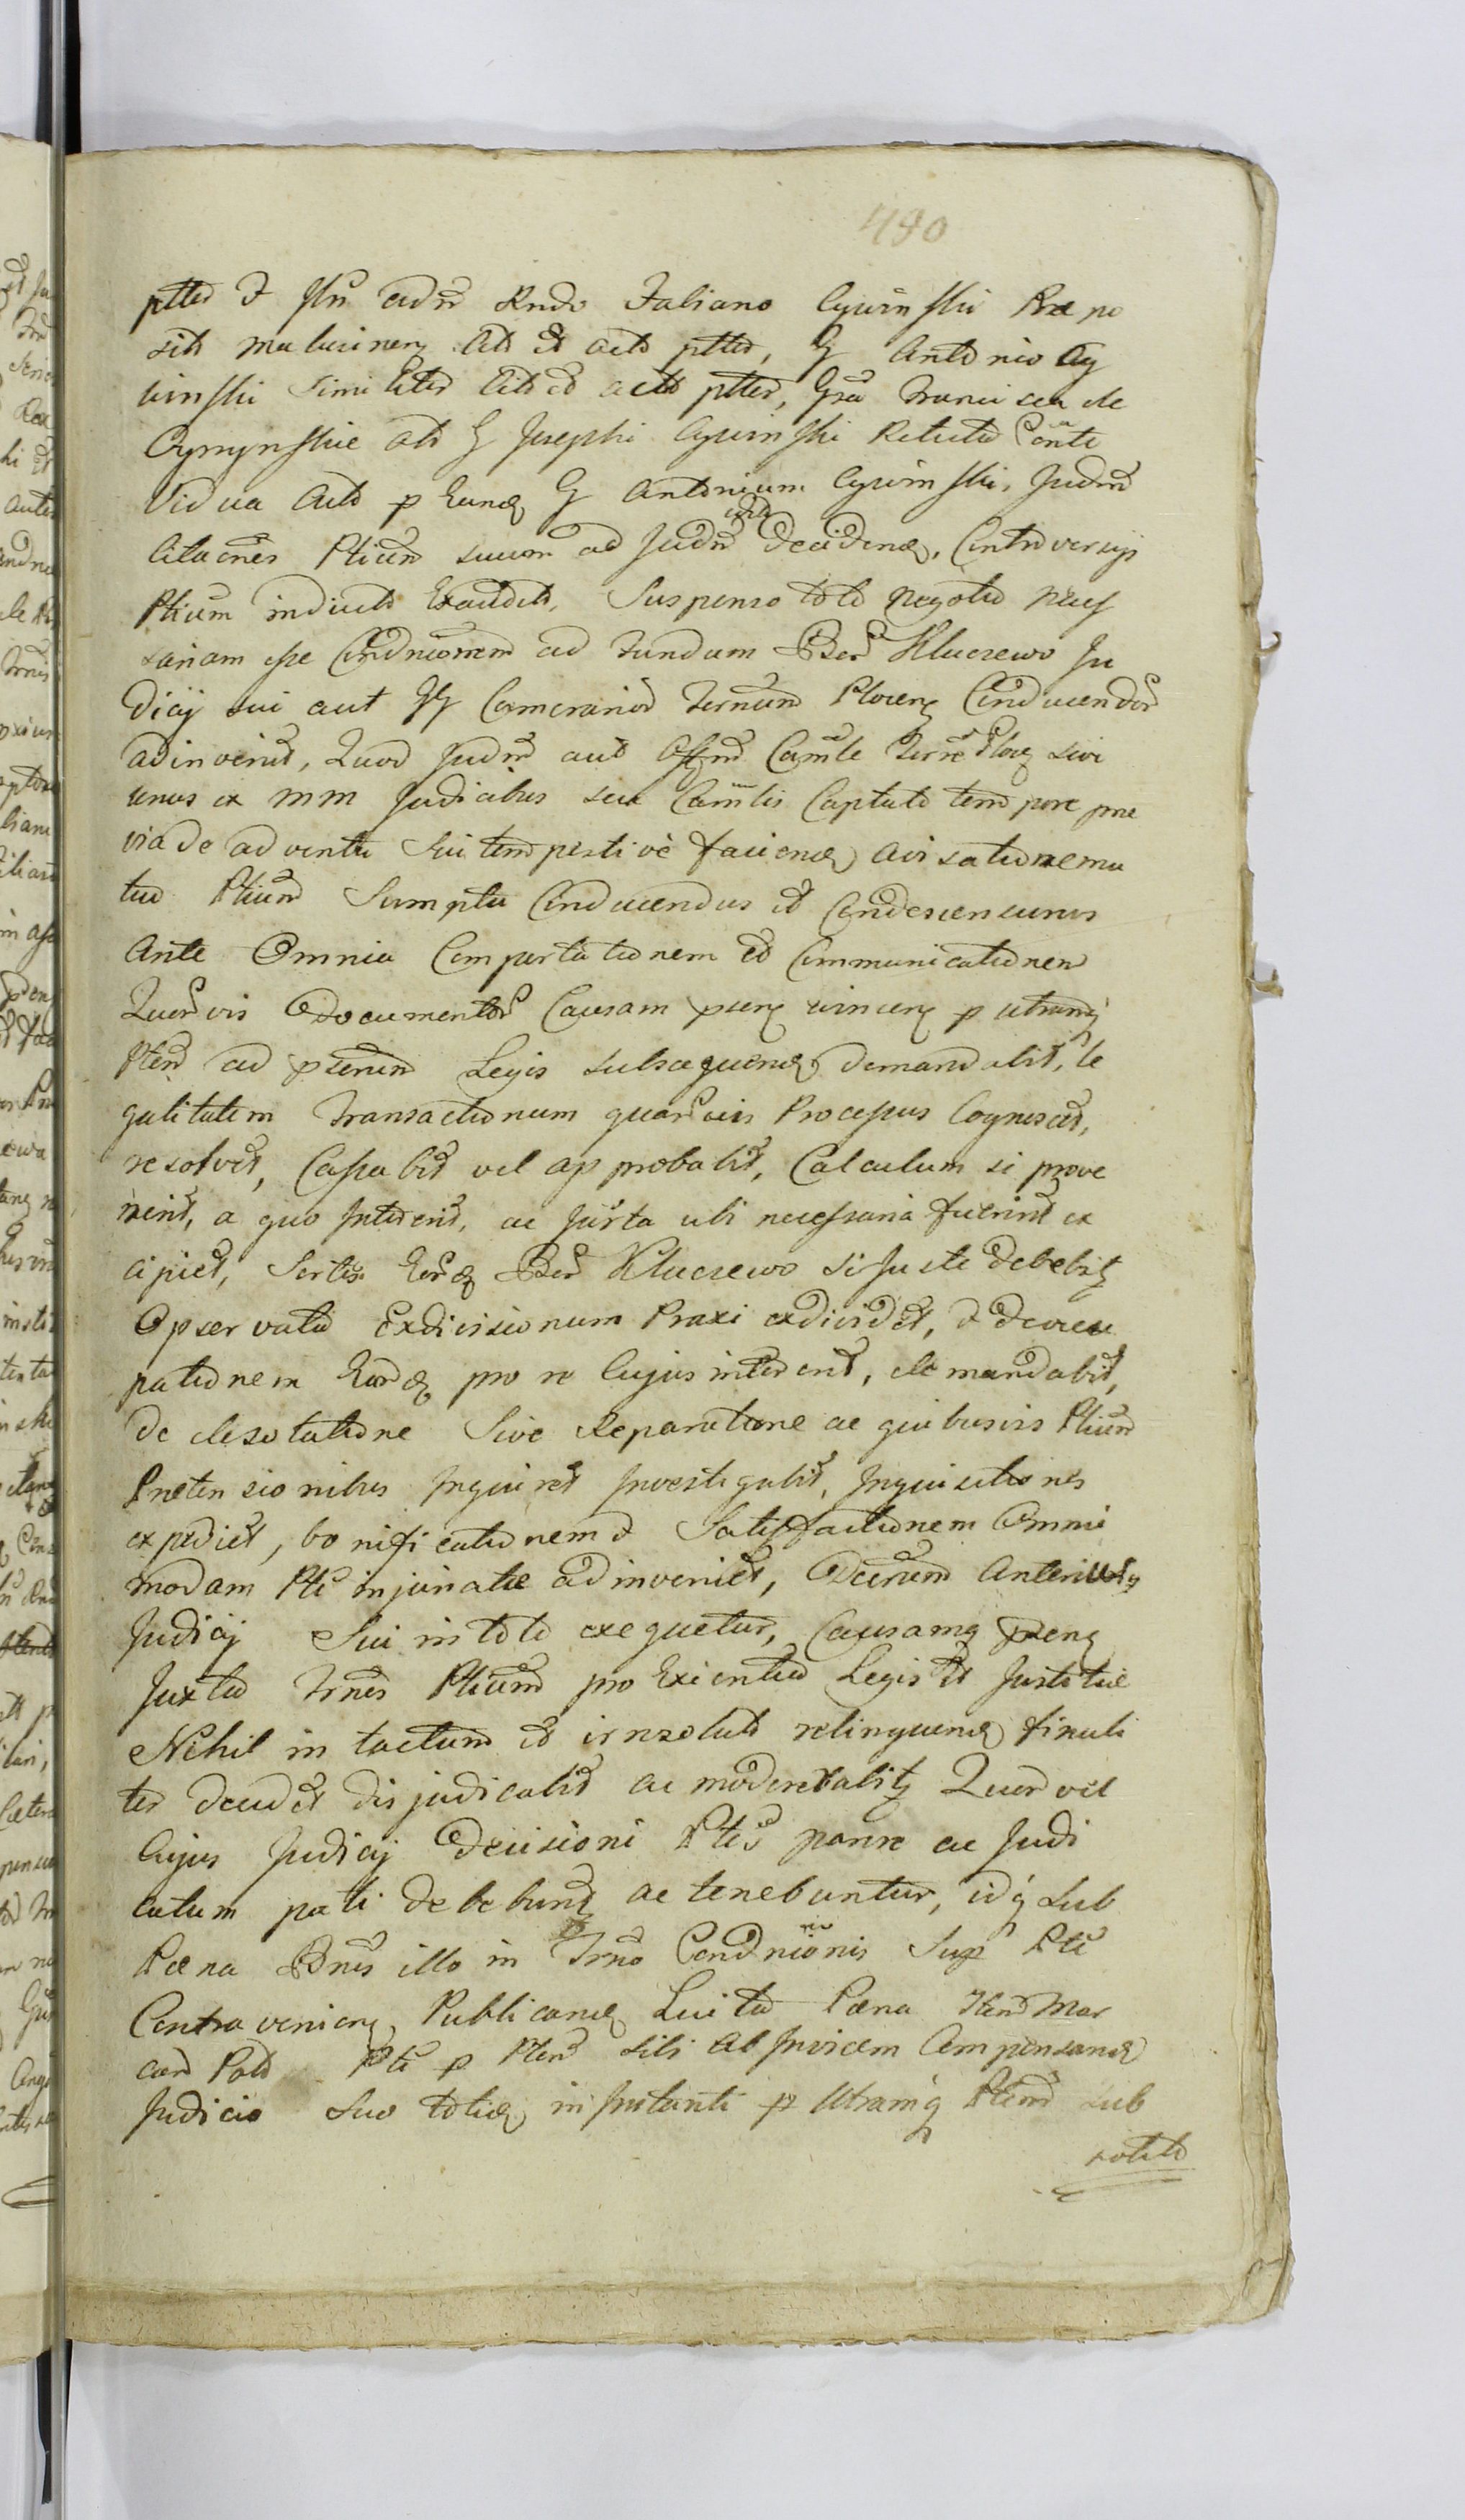 480
ptto & Iln adm Rndo Fabiano Cywinski Præpo
sito Malusinen Cito et acto ptto, G Antonio Cy
winski Similiter Cito et acto ptto, Gsa Francisca de
Cymynskie olo G Josephi Cywinski Relicta Conte
Vidua Acto p Eund G Antonium Cywinski, Judm
Citaones Ptium suum ad Judm decidend, Controversys
Ptium inducto Exaudito, Suspenso toto negotio necess
sariam esse Condnionem ad Fundum Bor Kluczewo Ju
dicij sui aut G Camerarior Ternum Plocen Conducendor
adinvenit, Quod Judm aut Offm Camle Terre Ploc sive
unus ex mm Judicibus seu Camlis Captato tempore præ
via de adventu Sui tempestivè faciend avisatione mu
tuo Ptium Sumptu Conducendus et Condescensurus
Ante Omnia Comportationem et Communicationem
Quorvis Documentor Causam psen vincen p utramq
Ptem ad psenm Legis subsequend demandabit, le
galitatem Transactionum quarvis Processus Cognoscet,
resolvet, Cassabit vel approbabit, Calculum si prove
nerit, a quo Intererit, ac Jurta ubi necessaria fuerint ex
cipiet, Sortes Eord Bor Kluczewo si Juste debebit
Opservata Exdivisionum Praxi exdividet, & deoccu
pationem Eord pro re Cujus intererit, demandabit,
de desolatione Sive Reparatione ac quibusvis Ptium
Prætensionibus Inquiret Investigabit, Inquisitiones
expediet, bonificationem & Satisfactionem Omni
modam Pti injuriatæ adinveniet, Decretum Anterius
Judicij Sui in toto exequetur, Causamq psen
Juxta Trnes Ptium pro Exigentia Legis et Justitiæ
Nihil intactum et irresolut relinquend finali
ter decidet disjudicabit ac moderabit Quorvel
Cujus Judicij Decisioni Ptes parere ac Judi
catum pati debebunt ac tenebuntur, idq sub
Pæna Bnis illo in Trno Condnionis Sup Pte
Contravenien Publicand Luita Pæna Mar
car Polo Pti p Ptem sibi ab Invicem Compensand
Judicio Suo toties in Instanti p Utramq Ptem sub
soluto